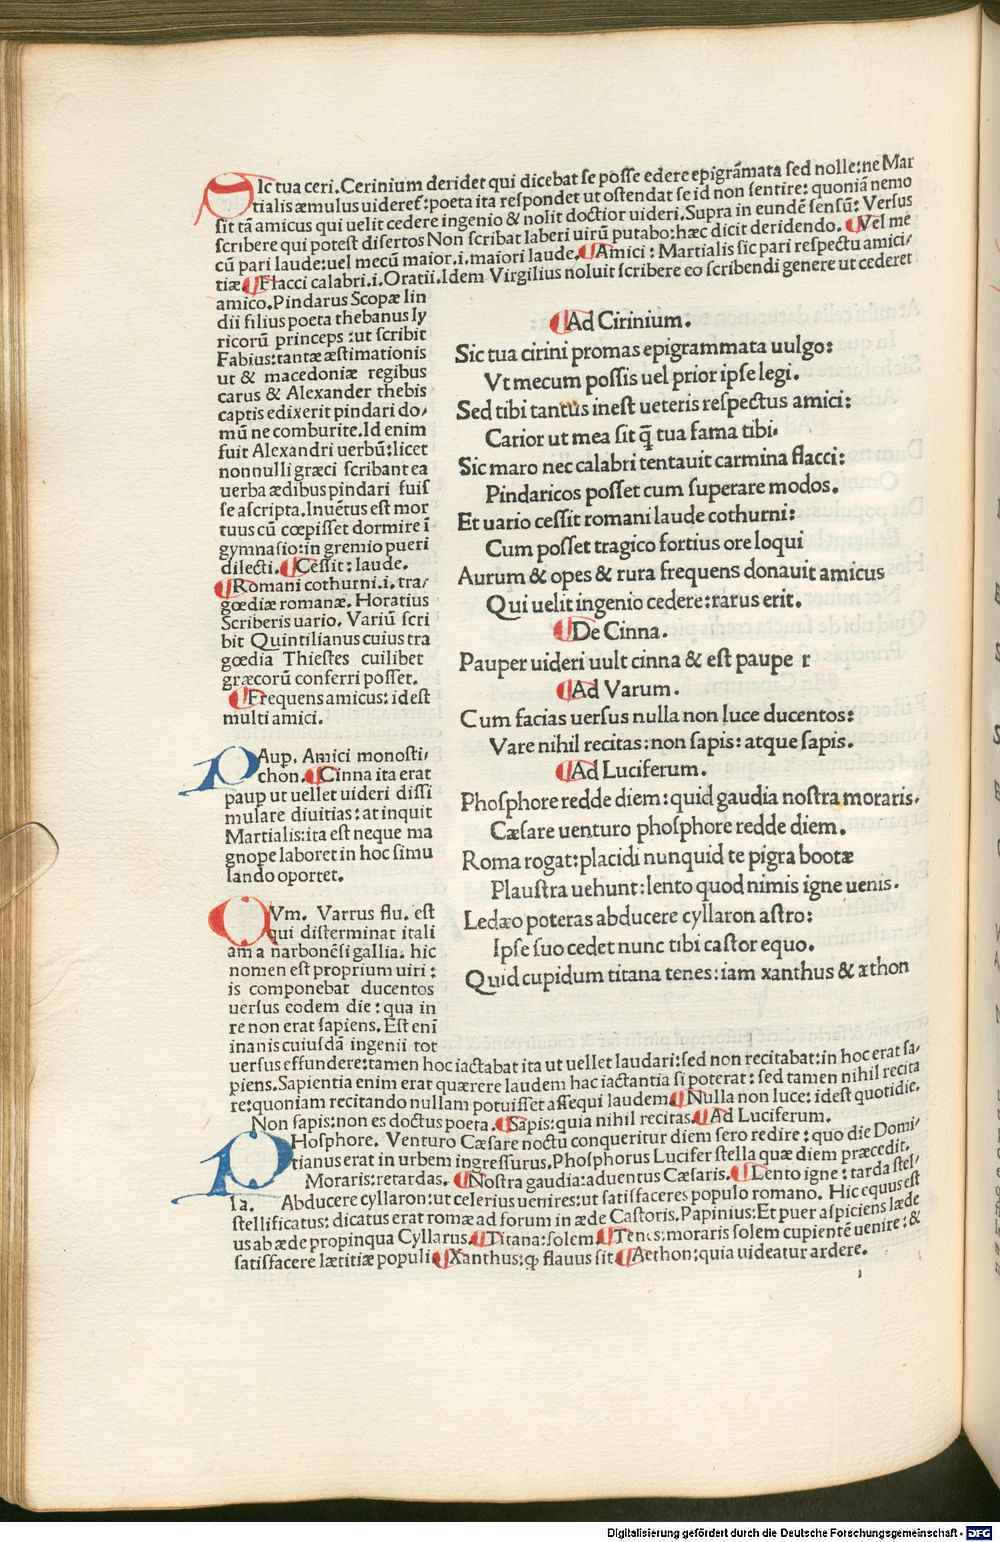 SIc tua ceri. Cerinium deridet qui dicebat se posse edere epigrāmata sed nolle: ne Mar
tialis æmulus uideret̃: poeta ita respondet ut ostendat se id non sentire: quoniā nemo
sit tā amicus qui uelit cedere ingenio & nolit doctior uideri. Supra in eundē sensū: Versus
scribere qui potest disertos Non scribat laberi uirū putabo: hæc dicit deridendo. Vel me
cū pari laude: uel mecū maior .i. maiori laude. Amici: Martialis sic pari respectu amici/
tiæ. Flacci calabri .i. Oratii. Idem Virgilius noluit scribere eo scribendi genere ut cederet
amico. Pindarus Scopæ lin
dii filius poeta thebanus ly
ricorū princeps: ut scribit
Fabius: tantæ æstimationis
ut & macedoniæ regibus
carus & Alexander thebis
captis edixerit pindari do/
mū ne comburite. Id enim
fuit Alexandri uerbū: licet
nonnulli græci scribant ea
uerba ædibus pindari fuis
se ascripta. Inuētus est mor
tuus cū cœpisset dormire ī
gymnasio: in gremio pueri
dilecti. Cessit: laude.
Romani cothurni .i. tra/
gœdiæ romanæ. Horatius
Scriberis uario. Variū scri
bit Quintilianus cuius tra
gœdia Thiestes cuilibet
græcorū conferri posset.
Frequens amicus: id est
multi amici.
PAup. Amici monosti/
chon. Cinna ita erat
paup ut uellet uideri dissi
mulare diuitias: at inquit
Martialis: ita est neque ma
gnope laboret in hoc simu
lando oportet.
CVm. Varrus flu. est
qui disterminat itali
am a narbonēsi gallia: hic
nomen est proprium uiri:
is componebat ducentos
uersus eodem die: qua in
re non erat sapiens. Est enī
inanis cuiusdā ingenii tot
uersus effundere: tamen hoc iactabat ita ut uellet laudari: sed non recitabat: in hoc erat sa/
piens. Sapientia enim erat quærere laudem hac iactantia si poterat: sed tamen nihil recita
re: quoniam recitando nullam potuisset assequi laudem. Nulla non luce: id est quotidie.
Non sapis: non es doctus poeta. Sapis: quia nihil recitas. Ad Luciferum.
PHosphore. Venturo Cæsare noctu conqueritur diem sero redire: quo die Domi/
tianus erat in urbem ingressurus. Phosphorus Lucifer stella quæ diem præcedit.
Moraris: retardas. Nostra gaudia: aduentus Cæsaris. Lento igne: tarda stel/
la. Abducere cyllaron: ut celerius uenires: ut satisfaceres populo romano. Hic equus est
stellificatus: dicatus erat romæ ad forum in æde Castoris. Papinius: Et puer aspiciens læde
us ab æde propinqua Cyllarus. Titana: solem. Tenes: moraris solem cupientē uenire: &
satisfacere lætitiæ populi. Xanthus: ꝙ flauus sit. Aethon: quia uideatur ardere.
Ad Cirinium.
Sic tua cirini promas epigrammata uulgo:
Vt mecum possis uel prior ipse legi.
Sed tibi tantus inest ueteris respectus amici:
Carior ut mea sit q̄ tua fama tibi.
Sic maro nec calabri tentauit carmina flacci:
Pindaricos posset cum superare modos.
Et uario cessit romani laude cothurni:
Cum posset tragico fortius ore loqui
Aurum & opes & rura frequens donauit amicus
Qui uelit ingenio cedere: rarus erit.
De Cinna.
Pauper uideri uult cinna & est paupe r
Ad Varum.
Cum facias uersus nulla non luce ducentos:
Vare nihil recitas: non sapis: atque sapis.
Ad Luciferum.
Phosphore redde diem: quid gaudia nostra moraris.
Cæsare uenturo phosphore redde diem.
Roma rogat: placidi nunquid te pigra bootæ
Plaustra uehunt: lento quod nimis igne uenis.
Ledæo poteras abducere cyllaron astro:
Ipse suo cedet nunc tibi castor equo.
Quid cupidum titana tenes: iam xanthus & æthon
Digitalisierung gefördert durch die Deutsche Forschungsgemeinschaft - DFG